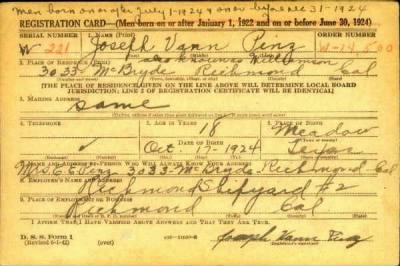 Men born on or after July 1-1924 & on or before Dec 31-1924
REGISTRATION CARD—(Men born on or after January 1, 1922 and on or before June 30, 1924)
SERIAL NUMBER 1. NAME (Print) ORDER NUMBER
W 221 Joseph Vann Penz W-14,500
also known as Williamson
2. PLACE OF RESIDENCE (Print)
3033 McBryde Richmond Cal
[THE PLACE OF RESIDENCE GIVEN ON THE LINE ABOVE WILL DETERMINE LOCAL BOARD
JURISDICTION; LINE 2 OF REGISTRATION CERTIFICATE WILL BE IDENTICAL]
3. MAILING ADDRESS
Same
4. TELEPHONE 5. AGE IN YEARS 6. PLACE OF BIRTH
18 Meadow
DATE OF BIRTH
Oct. 17-1924 Texas
7. NAME AND ADDRESS OF PERSON WHO WILL ALWAYS KNOW YOUR ADDRESS
Mrs. C E Penz 3033-McBryde, Richmond Cal
8. EMPLOYER'S NAME AND ADDRESS
Richmond Shipyard #2
9. PLACE OF EMPLOYMENT OR BUSINESS
Richmond Cal
I AFFIRM THAT I HAVE VERIFIED ABOVE ANSWERS AND THAT THEY ARE TRUE.
D. S. S. Form 1
(Revised 6-1-42) (over) Joseph Vann Penz